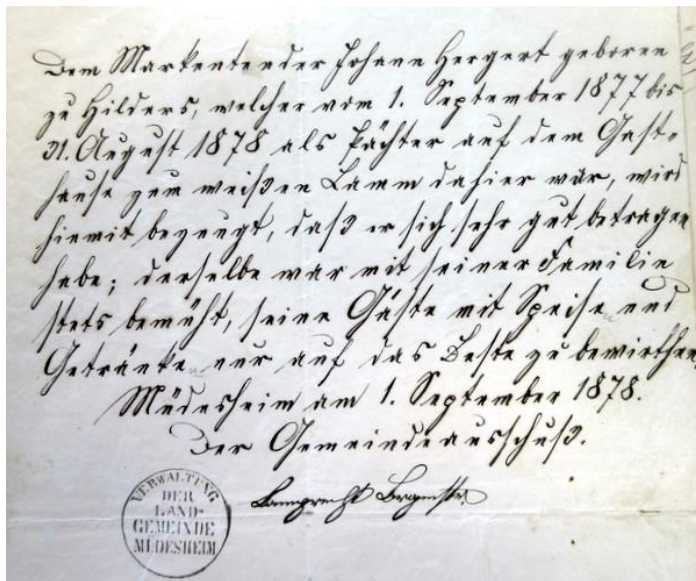 Dem Markentender Johann Hergert geboren
zu Hilders, welcher vom 1. September 1877 bis
31. August 1878 als Pächter auf dem Gast-
hause zum weißen Lamm dahier war, wird
hiemit bezeugt, daß er sich sehr gut betragen
habe; derselbe war mit seiner Familie
stets bemüht, seine Gäste mit Speise und
Getränke nur auf das Beste zu bewirthen.
Müdesheim am 1. September 1878.
Der Gemeindeausschuß.
Lamprecht Brgmstr.
VERWALTUNG
DER
LAND-
GEMEINDE
MÜDESHEIM